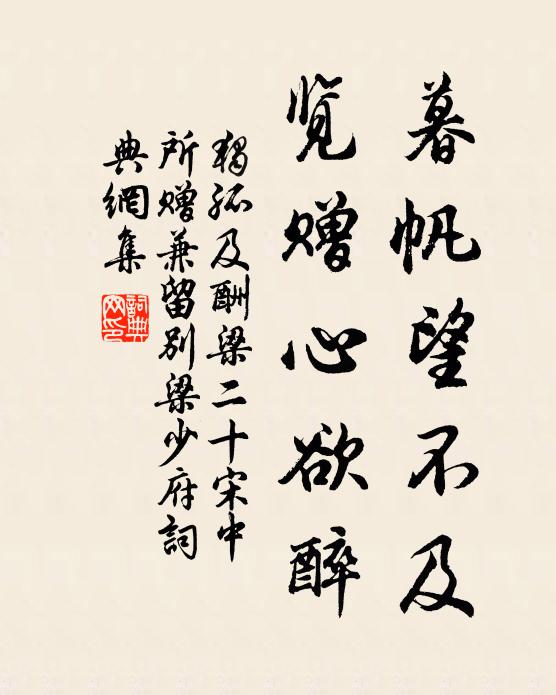 暮帆望不及
览赠心欲醉
獨孤及酬梁二十宋中
所赠兼留别梁少府詞
典網集
詞典
网印